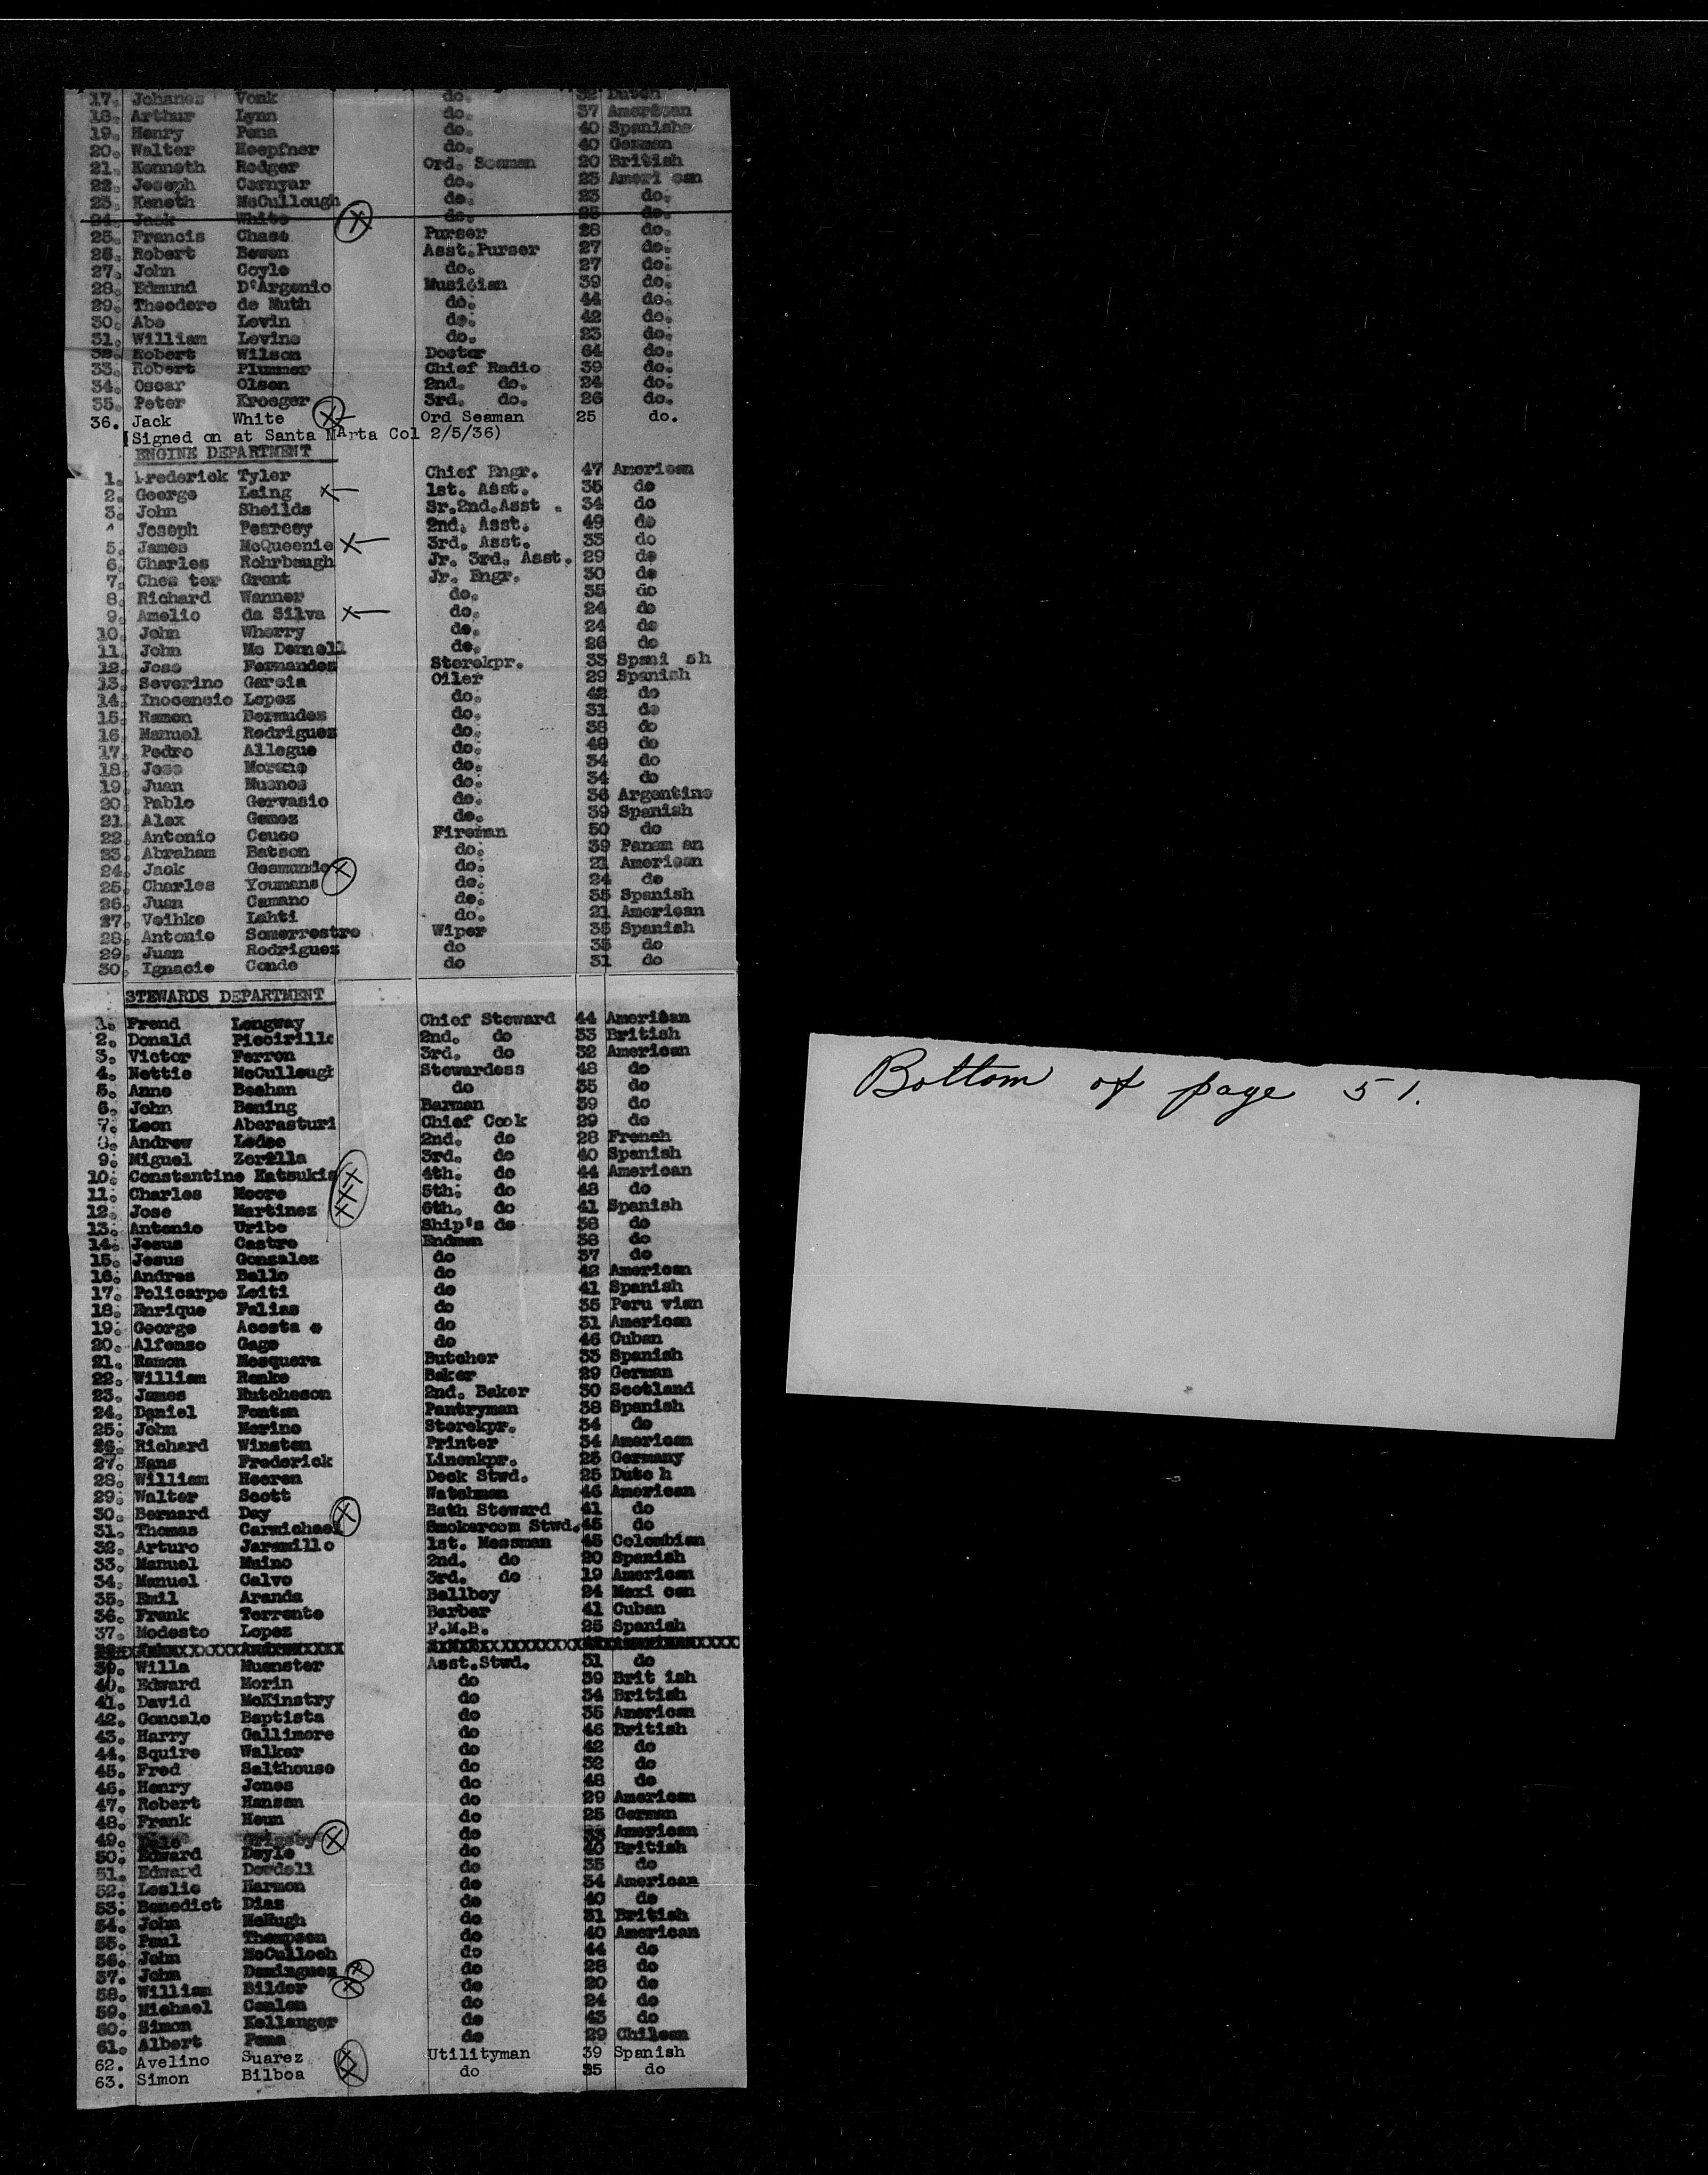 17. Johanes Vonk do. 32 Dutch
18. Arthur Lynn do. 37 American
19. Henry Pena do. 40 Spanish
20. Walter Hoepfner do. 40 German
21. Kenneth Rodger Ord. Seaman 20 British
22. Joseph Cornyar do. 23 Ameri can
23. Keneth McCullough do. 23 do.
24. Jack White do. 25 do.
25. Francis Chase Purser 28 do.
26. Robert Bowen Asst.Purser 27 do.
27. John Coyle do. 27 do.
28. Edmund D'Argenio Musician 39 do.
29. Theodore de Muth do. 44 do.
30. Abe Levin do. 42 do.
31. William Levine do. 23 do.
32. Robert Wilson Doctor 64 do.
33. Robert Plummer Chief Radio 39 do.
34. Oscar Olsen 2nd. do. 24 do.
35. Peter Kroeger 3rd. do. 26 do.
36. Jack White X Ord Seaman 25 do.
(Signed on at Santa MArta Col 2/5/36)
ENGINE DEPARTMENT
1. Frederick Tyler Chief Engr. 47 American
2. George Laing X 1st. Asst. 35 do
3. John Sheilds Sr.2nd.Asst . 34 do
Joseph Pearcey 2nd. Asst. 49 do
5. James McQueenie X 3rd. Asst. 33 do
6. Charles Rohrbaugh Jr. 3rd. Asst. 29 do
7. Ches ter Grant Jr. Engr. 30 do
8. Richard Wanner do. 35 do
9. Amelio da Silva X do. 24 do
10. John Wherry do. 24 do
11. John Mc Donnell do. 26 do
12. Jose Fernandez Storekpr. 33 Spani sh
13. Severino Garcia Oiler 29 Spanish
14. Inocencio Lopez do. 42 do
15. Ramon Bermudez do. 31 do
16. Manuel Rodriguez do. 38 do
17. Pedro Allegue do. 49 do
18. Jose Moreno do. 34 do
19. Juan Muenos do. 34 do
20. Pablo Gervasio do. 36 Argentine
21. Alex Gomez do. 39 Spanish
22. Antonio Couce Fireman 50 do
23. Abraham Batson do. 39 Panam an
24. Jack Gesmundo X do. 21 American
25. Charles Youmans do. 24 do
26. Juan Camano do. 35 Spanish
27. Veihko Lahti do. 21 American
28. Antonio Somorrostro Wiper 35 Spanish
29. Juan Rodriguez do 35 do
30. Ignacio Conde do 31 do
STEWARDS DEPARTMENT
1. Frend Longway Chief Steward 44 American
2. Donald Piccirillo 2nd. do 33 British
3. Victor Ferron 3rd. do 32 American
4. Nettie McCullough Stewardess 48 do
5. Anne Beehan do 35 do
6. John Bening Barman 39 do
7. Leon Aberasturi Chief Cook 29 do
8. Andrew Ledee 2nd. do 28 French
9. Miguel Zorilla 3rd. do 40 Spanish
10. Constantine Katsukis X 4th. do 44 American
11. Charles Moore X 5th. do 48 do
12. Jose Martinez X 6th. do 41 Spanish
13. Antonio Uribe Ship's do 38 do
14. Jesus Castro Endman 38 do
15. Jesus Gonzalez do 37 do
16. Andres Bello do 42 American
17. Policarpo Leiti do 41 Spanish
18. Enrique Falias do 35 Peru vian
19. George Acosta do 31 American
20. Alfonso Gago do 46 Cuban
21. Ramon Mosquera Butcher 33 Spanish
22. William Renke Baker 29 German
23. James Hutcheson 2nd. Baker 30 Scotland
24. Daniel Fontan Pantryman 38 Spanish
25. John Merino Storekpr. 34 do
26. Richard Winston Printer 34 American
27. Hans Frederick Linenkpr. 25 Germany
28. William Heeren Deck Stwd. 25 Dutc h
29. Walter Scott Watchman 46 American
30. Bernard Day X Bath Steward 41 do
31. Thomas Carmichael Smokeroom Stwd. 45 do
32. Arturo Jaramillo 1st. Messman 45 Colombian
33. Manuel Muino 2nd. do 20 Spanish
34. Manuel Calvo 3rd. do 19 American
35. Emil Aranda Bellboy 24 Mexi can
36. Frank Torrente Barber 41 Cuban
37. Modesto Lopez F.M.B. 25 Spanish
39. Willa Muenster Asst.Stwd. 31 do
40. Edward Morin do 39 Brit ish
41. David McKinstry do 34 British
42. Goncalo Baptista do 35 American
43. Harry Gallimore do 46 British
44. Squire Walker do 42 do
45. Fred Salthouse do 32 do
46. Henry Jones do 48 do
47. Robert Hansen do 29 American
48. Frank Heun do 25 German
49. Dale Grigsby X do 33 American
50. Edward Doyle do 40 British
51. Edward Dowdell do 35 do
52. Leslie Harmon do 34 American
53. Benedict Dias do 40 do
54. John McHugh do 31 British
55. Paul Thompson do 40 American
56. John McCulloch do 44 do
57. John Dominguez X do 28 do
58. William Bilder X do 20 do
59. Michael Conlon do 24 do
60. Simon Kellanger do 43 do
61. Albert Pena do 29 Chilean
62. Avelino Suarez X Utilityman 39 Spanish
63. Simon Bilboa X do 35 do
Bottom of page 51.